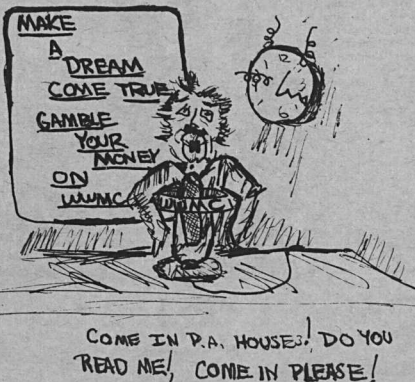 MAKE
A
DREAM
COME TRUE
GAMBLE
YOUR
MONEY
ON
WWMC
WWMC
COME IN P.A. HOUSES! DO YOU
READ ME! COME IN PLEASE!